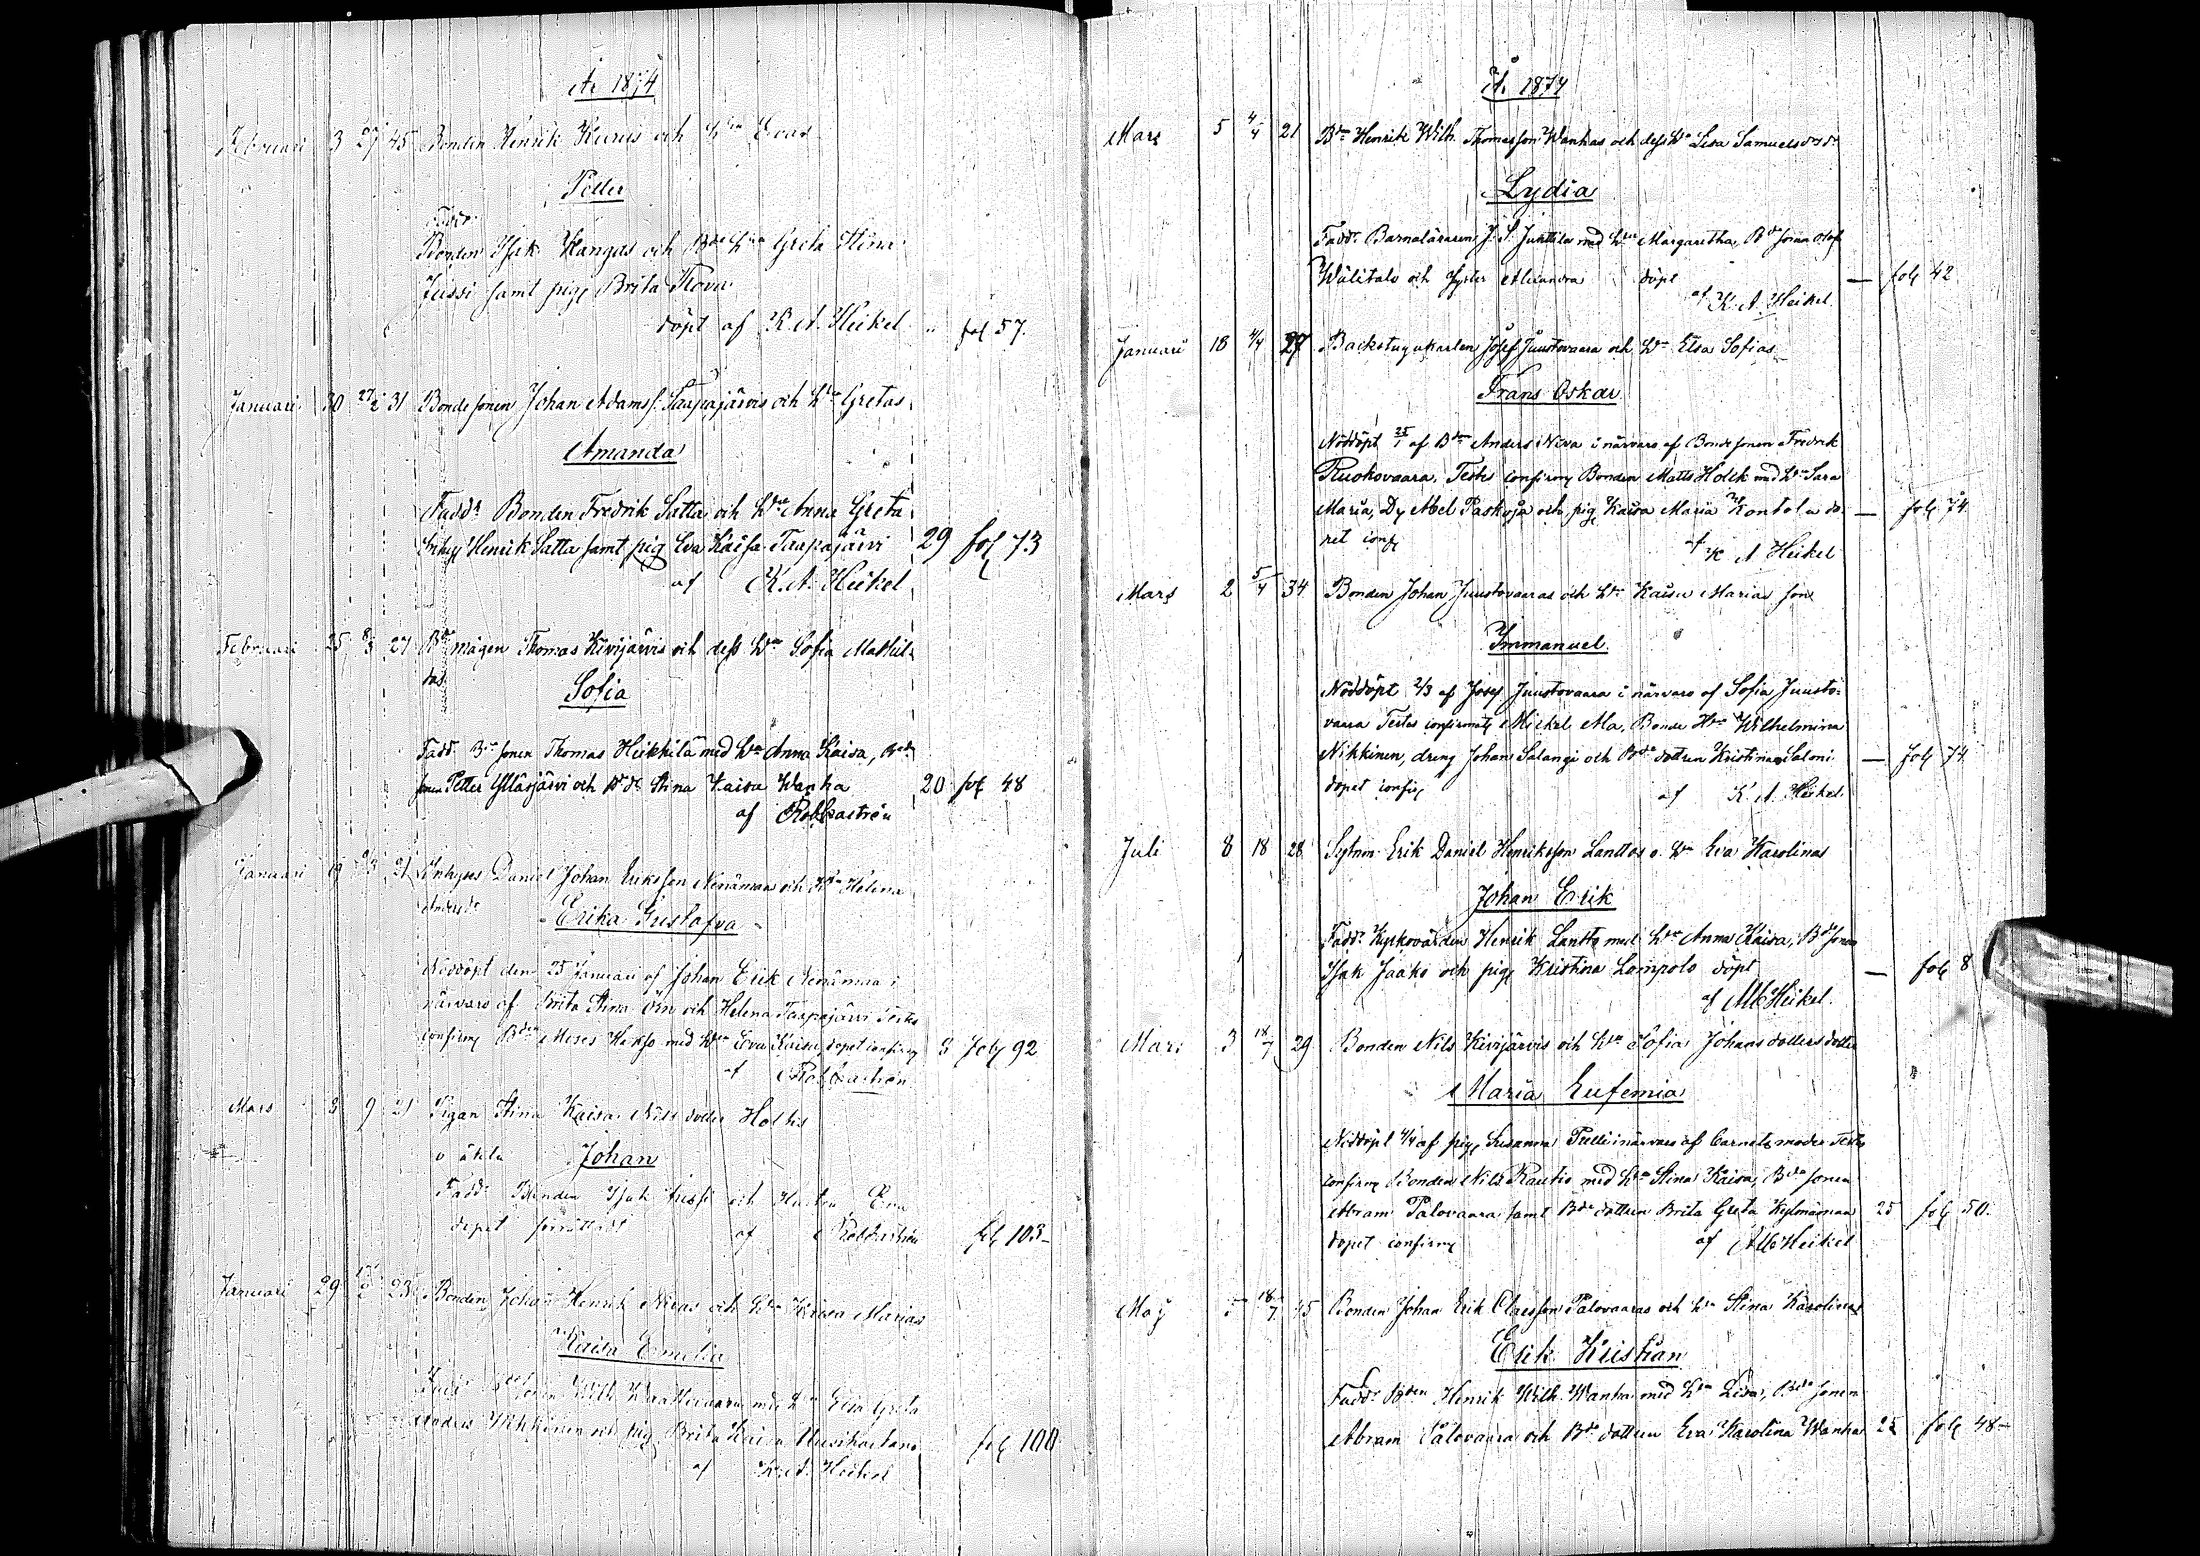 A. 1874
Februari 3 27 45 Bonden Henrik Kurus och hu Evas
Petter
Fadd.
Bonden Isak Kangas och Bde hu Greta Stina
Jussi samt pig Brita Rova
döpt af K. A. Heikel fol 57.
Januari 30 27/2 31 Bondesonen Johan Adamsf. Taapajärvis och hu Gretas
Amanda
Fadd. Bonden Fredrik Satta och Hu Anna Greta
Henrik Satta samt pig Eva Kaisa Taapajärvi 29 fol 73
af K. A. Heikel
Februari 25 8/3 27 Bde mågen Thomas Kivijärvis och dess hu Sofia Mathil-
das
Sofia
Fadd. Bde sonen Thomas Heikkilä med hu Anna Kaisa, Bde
sonen Petter Ylläsjärvi och Bde dr Stina Kaisa Wanha 20 fol 48
af Rob Castrén
Januari 19 21 Inhyses Daniel Johan Eriksson Nenämaa och Hu Helena
Andersdr
Erika Gustafva
Nöddöpt den 25 Januari af Johan Erik Nenämaa i
närvaro af Brita Stina Örn och Helena Taapajärvi Testes
confirm Bden Moses Hukso med hu Eva Kaisa, dopet confirm 3 fol 92
af Rob Castrén
Mars 3 9 21 Pigan Stina Kaisa Nilsdotter Holtis
o äkta Johan
Fadd. Bonden Isak Jussi och Hustru Eva
dopet förrättadt af Rob Castrén fol 103
Januari 29 23 Bonden Johan Henrik Nivas och hu Kaisa Marias
Kaisa Emelia
Fadd. Bde sonen Wilh med hu Elsa Greta
Anders Nikkinen och pig Brita Kaisa Uusihartano fol 100
af K. A. Heikel
A. 1874
Mars 5 4/4 21 Bdn Henrik Wilh. Thomasson Wanhas och dess hu Lisa Samuelsdrs dr
Lydia
Fadd. Barnaläraren J. S. Junttila med hu Margaretha, Bde sonen Olof
Wälitalo och Syster Alexandra döpt
af K. A. Heikel — fol 42
Januari 18 4/4 27 Backstugukarlen Josef Juustovaara och hu Elsa Sofias
Frans Oskar
Nöddöpt 25/1 af Bden Anders Niva i närvaro af Bondesonen Fredrik
Ruokovaara. Testes confirm Bonden Matts Holck med hu Sara
Maria, Dg Abel Paskoja och pig Kaisa Maria Kontola do- — fol 74
pet conf af K A Heikel
Mars 2 5/4 34 Bonden Johan Juustovaaras och hu Kaisa Marias son
Immanuel
Nöddöpt 2/3 af Josef Juustovaara i närvaro af Sofia Juusto-
vaara Testes confirmat Mickel Ala, Bonde Hu Wilhelmina
Nikkinen, dreng Johan Salangi och Bde dottren Kristina Saloni — fol 74
dopet confir af K. A. Heikel
Juli 8 18 28 Sytnm Erik Daniel Henriksson Lanttos o. hu Eva Karolinas
Johan Erik
Fadd. Kyrkovärden Henrik Lantto med hu Anna Kaisa, Bde sonen
Isak Jaako och pig Kristina Lompolo döpt — fol 8
af Alb Heikel
Mars 3 18/7 29 Bonden Nils Kivijärvis och hu Sofia Johansdotters dotter
Maria Eufemia
Nöddöpt 4/4 af pig Susanna Pulli i närvaro af barnets moder Testes
confirm Bonden Nils Rautio med hu Stina Kaisa, Bde sonen
Abram Palovaara samt Bde dottren Brita Greta Kylmämaa 25 fol 50.
dopet confirm af Alb Heikel
Maj 18/7 45 Bonden Johan Erik Claesson Palovaaras och hu Stina Karolinas
Erik Kristian
Fadd. Bden Henrik Wilh. Wanha med hu Lisa, Bde sonen
Abram Palovaara och Bde dottren Eva Karolina Wanha 25 fol 48